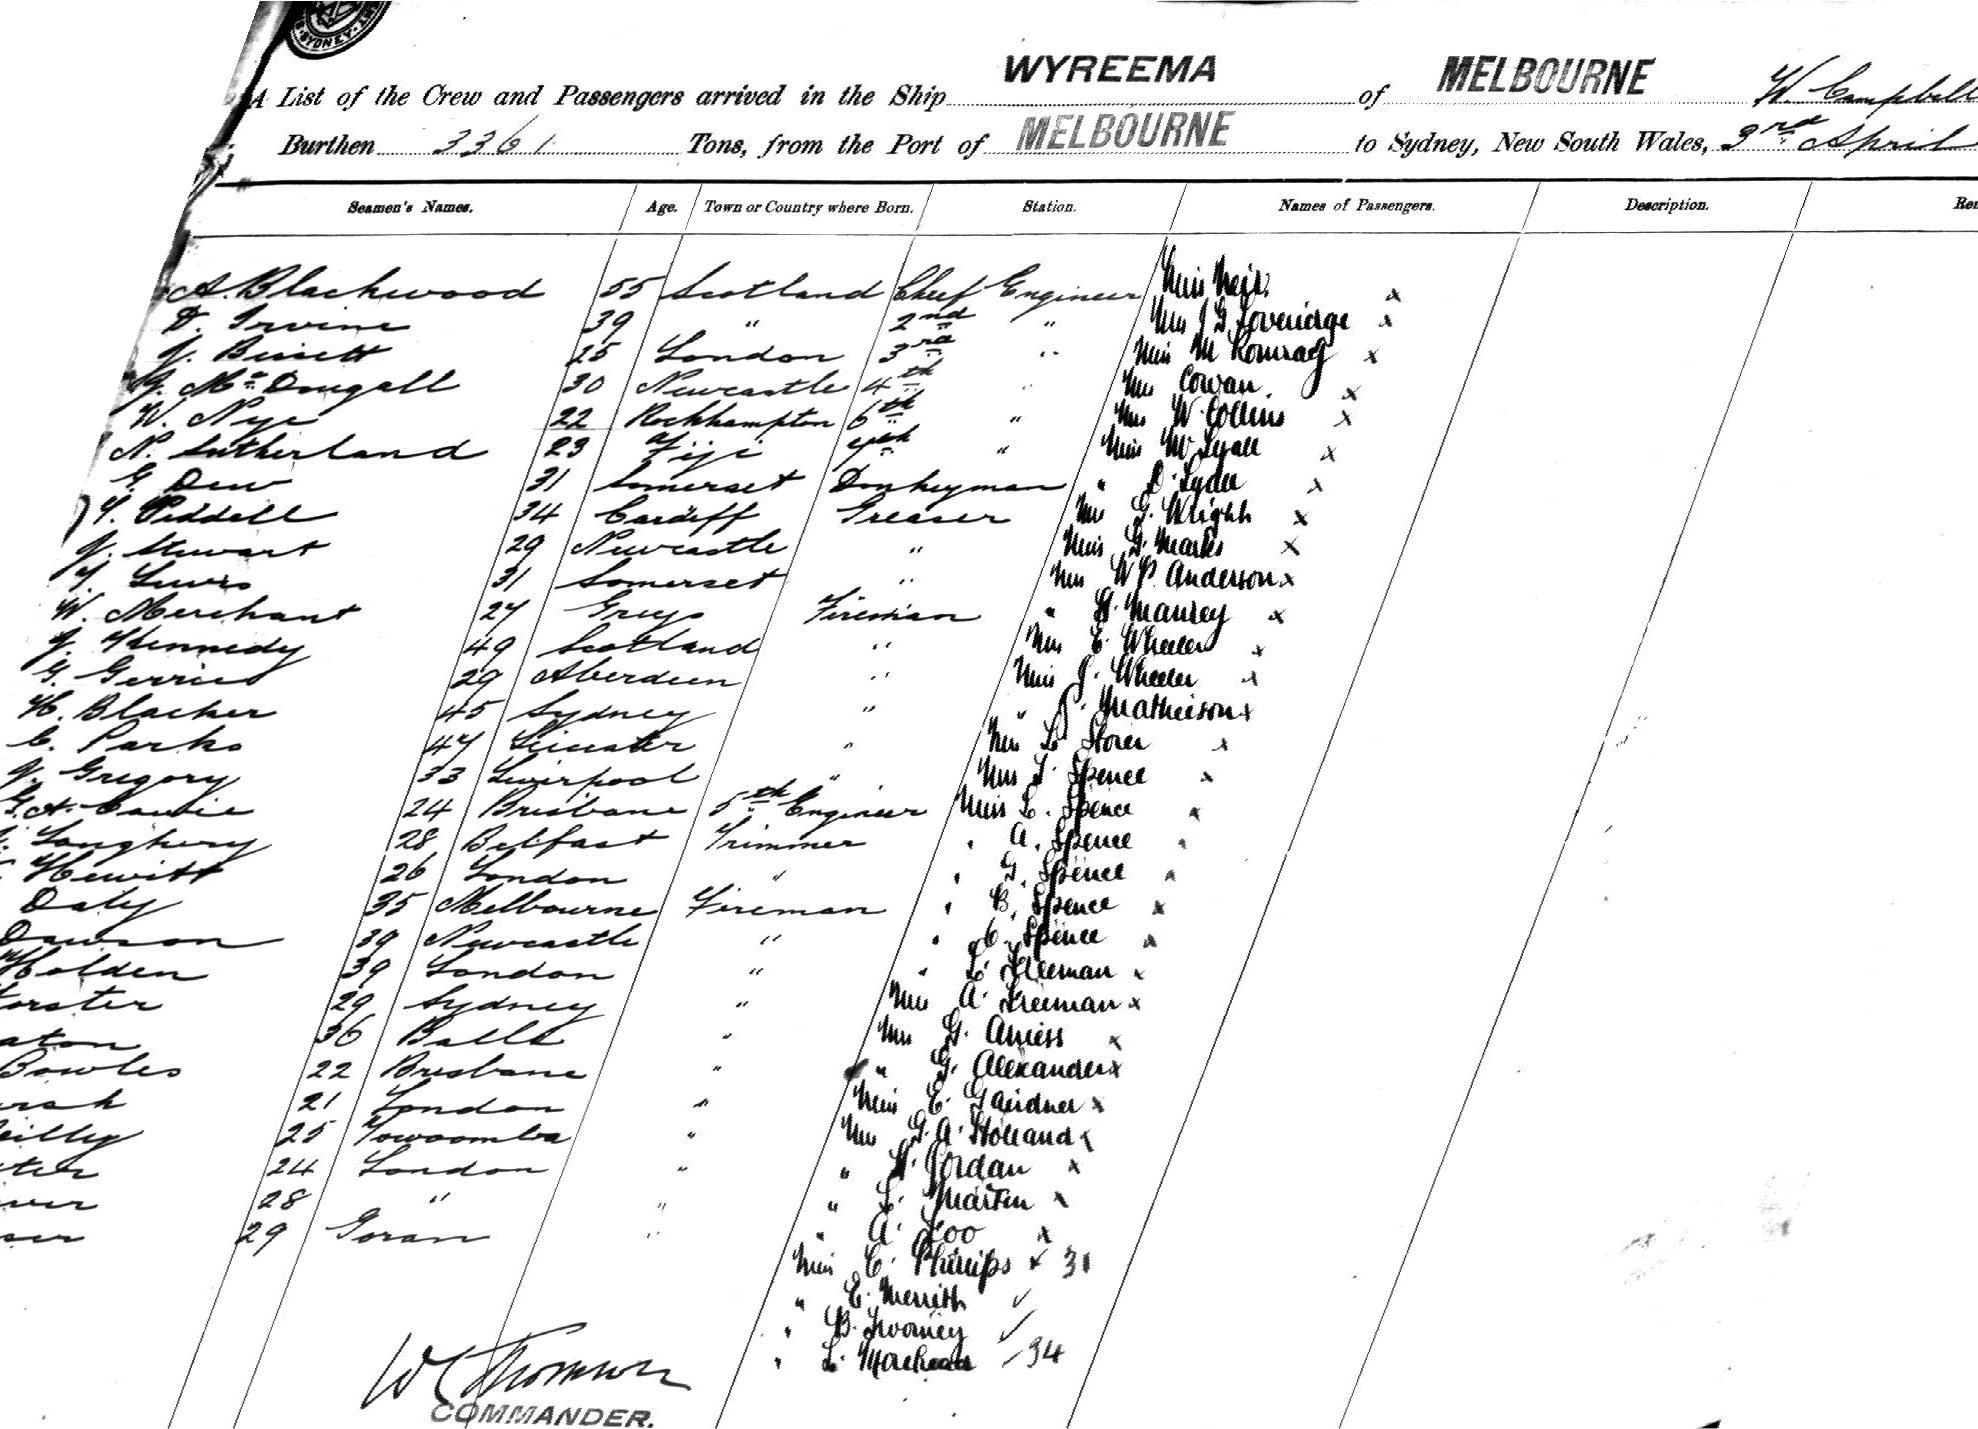 SYDNEY
WYREEMA MELBOURNE W. Campbell
A List of the Crew and Passengers arrived in the Ship of
Burthen 3361 Tons, from the Port of MELBOURNE to Sydney, New South Wales, 3rd April
Seamen's Names. Age. Town or Country where Born. Station. Names of Passengers. Description.
A. Blackwood 55 Scotland Chief Engineer Miss x
D. Irvine 39 " 2nd " Mrs J G Loveridge x
J. Bissett 25 London 3rd " Miss M x
J. Mc Dougall 30 Newcastle 4th " Mrs Cowan x
W. Nye 22 Rockhampton 6th " Mrs W. Collins x
N. Sutherland 23 Fiji 7th " Miss M Lyall x
G. Dew 31 Somerset Donkeyman " D. x
Y. Piddell 34 Cardiff Greaser Mrs G. Wright x
J. Stewart 29 Newcastle " Miss G. Marks x
Y. Lewis 31 Somerset " Mrs W P. Anderson x
W. Merchant 27 Greys Fireman " x
J. Kennedy 49 Scotland " Mrs E. Wheeler x
G. Gerrie 29 Aberdeen " Miss J. Wheeler x
H. Blacker 45 Sydney " " J. Mathieson x
C. Parks 47 Leicester " Mrs L. Storer x
J. Gregory 33 Liverpool " Mrs L. Spence x
G. H. Cowie 24 Brisbane 5th Engineer Miss L. Spence x
Loughery 28 Belfast Trimmer " A. Spence x
Hewitt 26 London " " G. Spence x
Daly 35 Melbourne Fireman " B. Spence x
Dawson 39 Newcastle " " C. Spence x
Holden 39 London " " L. Freeman x
orster 29 Sydney " Mrs A. Freeman x
aton 36 Balla " Mrs G. Amiess x
Bowles 22 Brisbane " " G. Alexander x
arsh 21 London " Miss E. Gardner x
eilly 25 Towoomba " Mrs G. A. Holland x
ster 24 London " " H. Jordan x
wer 28 " " " L. Martin x
ser 29 Goran " " A. Foo x
Miss C. Phillips x 31
" E. Merrith ✓
" B. Twomey ✓
" L. Morehead / 34
W C Thomson
COMMANDER.